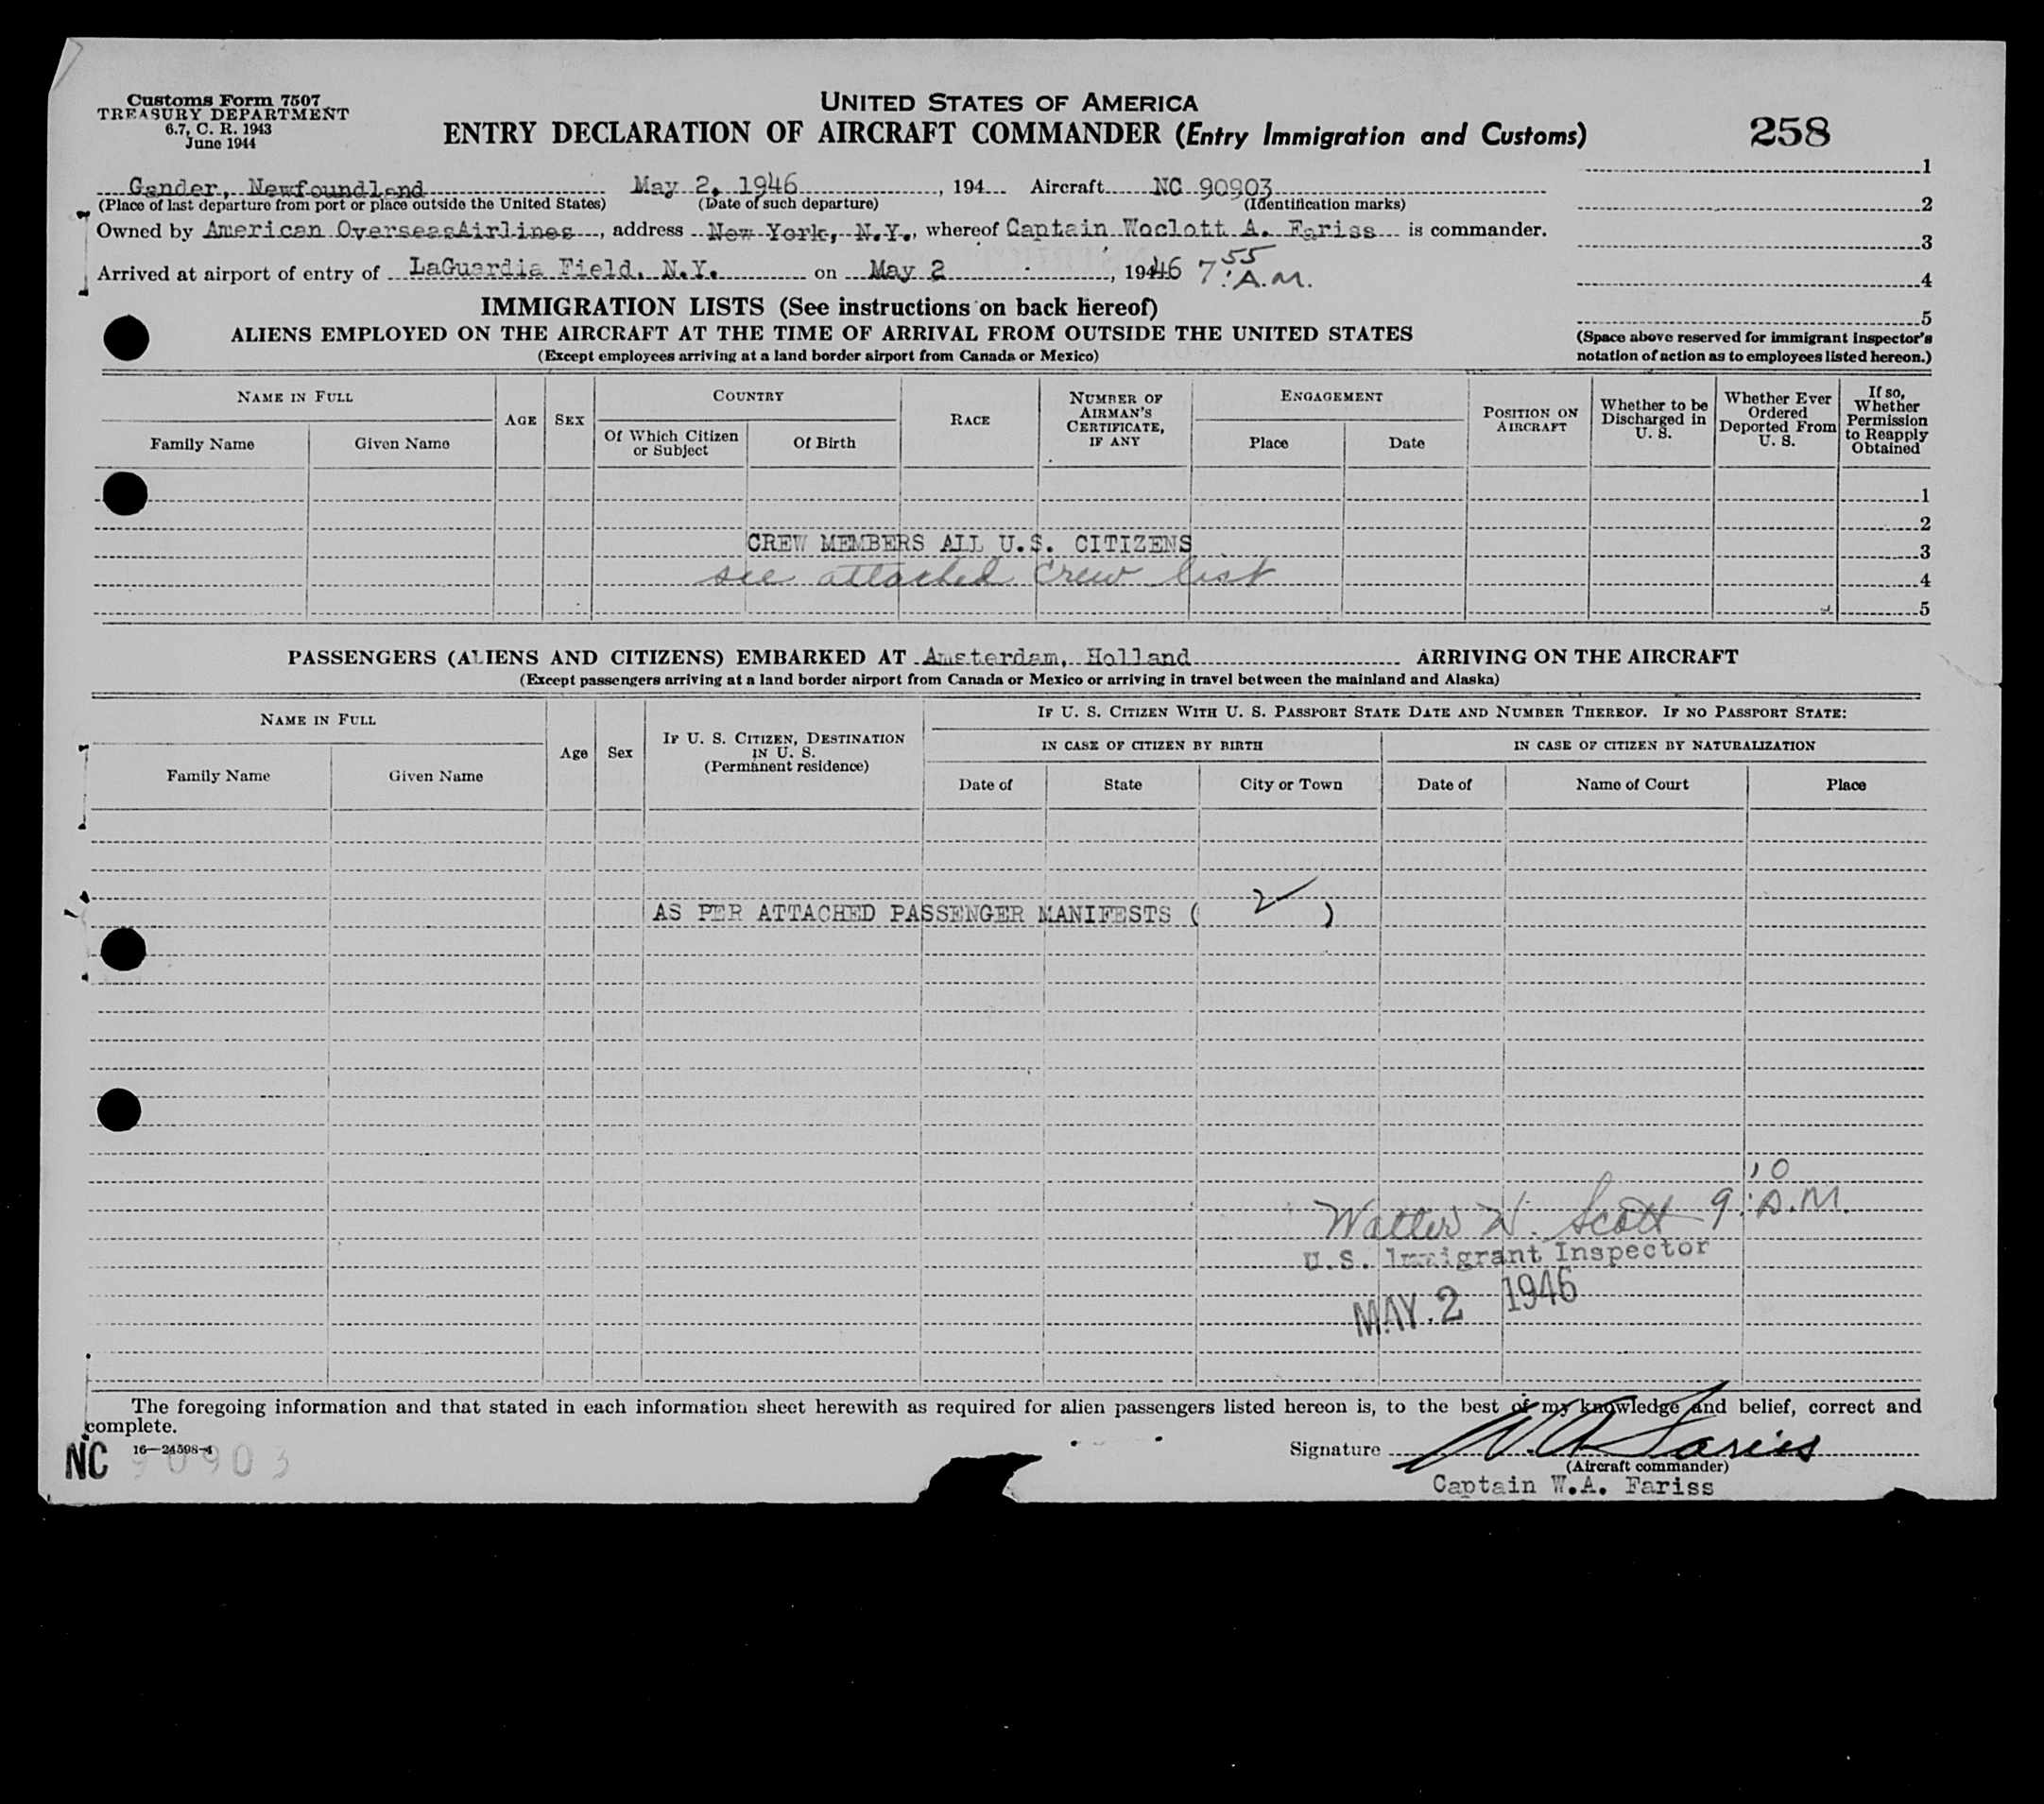 Customs Form 7507
TREASURY DEPARTMENT
6.7, C. R. 1943
June 1944
UNITED STATES OF AMERICA
ENTRY DECLARATION OF AIRCRAFT COMMANDER (Entry Immigration and Customs)
258
Gander, Newfoundland May 2, 1946, 194 Aircraft NC 90903
(Place of last departure from port or place outside the United States) (Date of such departure) (Identification marks)
Owned by American OverseasAirlines, address New York, N.Y., whereof Captain Woclott A. Fariss is commander.
Arrived at airport of entry of LaGuardia Field, N.Y. on May 2, 19446 7:55 A.M.
1
2
3
4
5
(Space above reserved for immigrant inspector's
notation of action as to employees listed hereon.)
IMMIGRATION LISTS (See instructions on back hereof)
ALIENS EMPLOYED ON THE AIRCRAFT AT THE TIME OF ARRIVAL FROM OUTSIDE THE UNITED STATES
(Except employees arriving at a land border airport from Canada or Mexico)
NAME IN FULL
Family Name
Given Name
AGE
SEX
COUNTRY
Of Which Citizen
or Subject
Of Birth
RACE
NUMBER OF
AIRMAN'S
CERTIFICATE,
IF ANY
ENGAGEMENT
Place
Date
POSITION ON
AIRCRAFT
Whether to be
Discharged in
U. S.
Whether Ever
Ordered
Deported From
U. S.
If so,
Whether
Permission
to Reapply
Obtained
1
2
CREW MEMBERS ALL U.S. CITIZENS 3
see attached crew list 4
5
PASSENGERS (ALIENS AND CITIZENS) EMBARKED AT Amsterdam, Holland ARRIVING ON THE AIRCRAFT
(Except passengers arriving at a land border airport from Canada or Mexico or arriving in travel between the mainland and Alaska)
NAME IN FULL
Family Name
Given Name
Age
Sex
IF U. S. CITIZEN, DESTINATION
IN U. S.
(Permanent residence)
IF U. S. CITIZEN WITH U. S. PASSPORT STATE DATE AND NUMBER THEREOF. IF NO PASSPORT STATE:
IN CASE OF CITIZEN BY BIRTH
Date of
State
City or Town
IN CASE OF CITIZEN BY NATURALIZATION
Date of
Name of Court
Place
AS PER ATTACHED PASSENGER MANIFESTS ( 2 )
Walter W. Scott 9:10 A.M.
U.S. Immigrant Inspector
MAY 2 1946
The foregoing information and that stated in each information sheet herewith as required for alien passengers listed hereon is, to the best of my knowledge and belief, correct and
complete.
16—24598-4
NC 90903
Signature W A Fariss
(Aircraft commander)
Captain W.A. Fariss